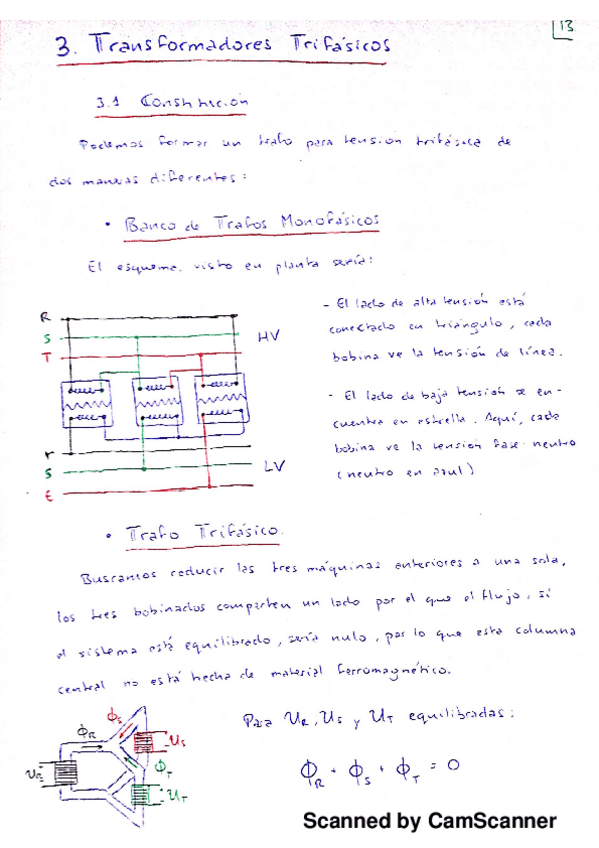 13
3. Transformadores Trifásicos
3.1 Constitución
Podemos formar un trafo para tensión trifásica de
dos maneras diferentes:
• Banco de Trafos Monofásicos
El esquema, visto en planta sería:
R
S
T
HV
- El lado de alta tensión está
conectado en triángulo, cada
bobina ve la tensión de línea.
- El lado de baja tensión se en-
cuentra en estrella. Aquí, cada
bobina ve la tensión fase-neutro
(neutro en azul)
r
s
t
LV
• Trafo Trifásico.
Buscamos reducir las tres máquinas anteriores a una sola,
los tres bobinados comparten un lado por el que el flujo, si
el sistema está equilibrado, sería nulo, por lo que esta columna
central no está hecha de material ferromagnético.
Para UR, US y UT equilibradas:
ϕR + ϕS + ϕT = 0
ϕS
ϕR
US
UR
ϕT
UT
Scanned by CamScanner